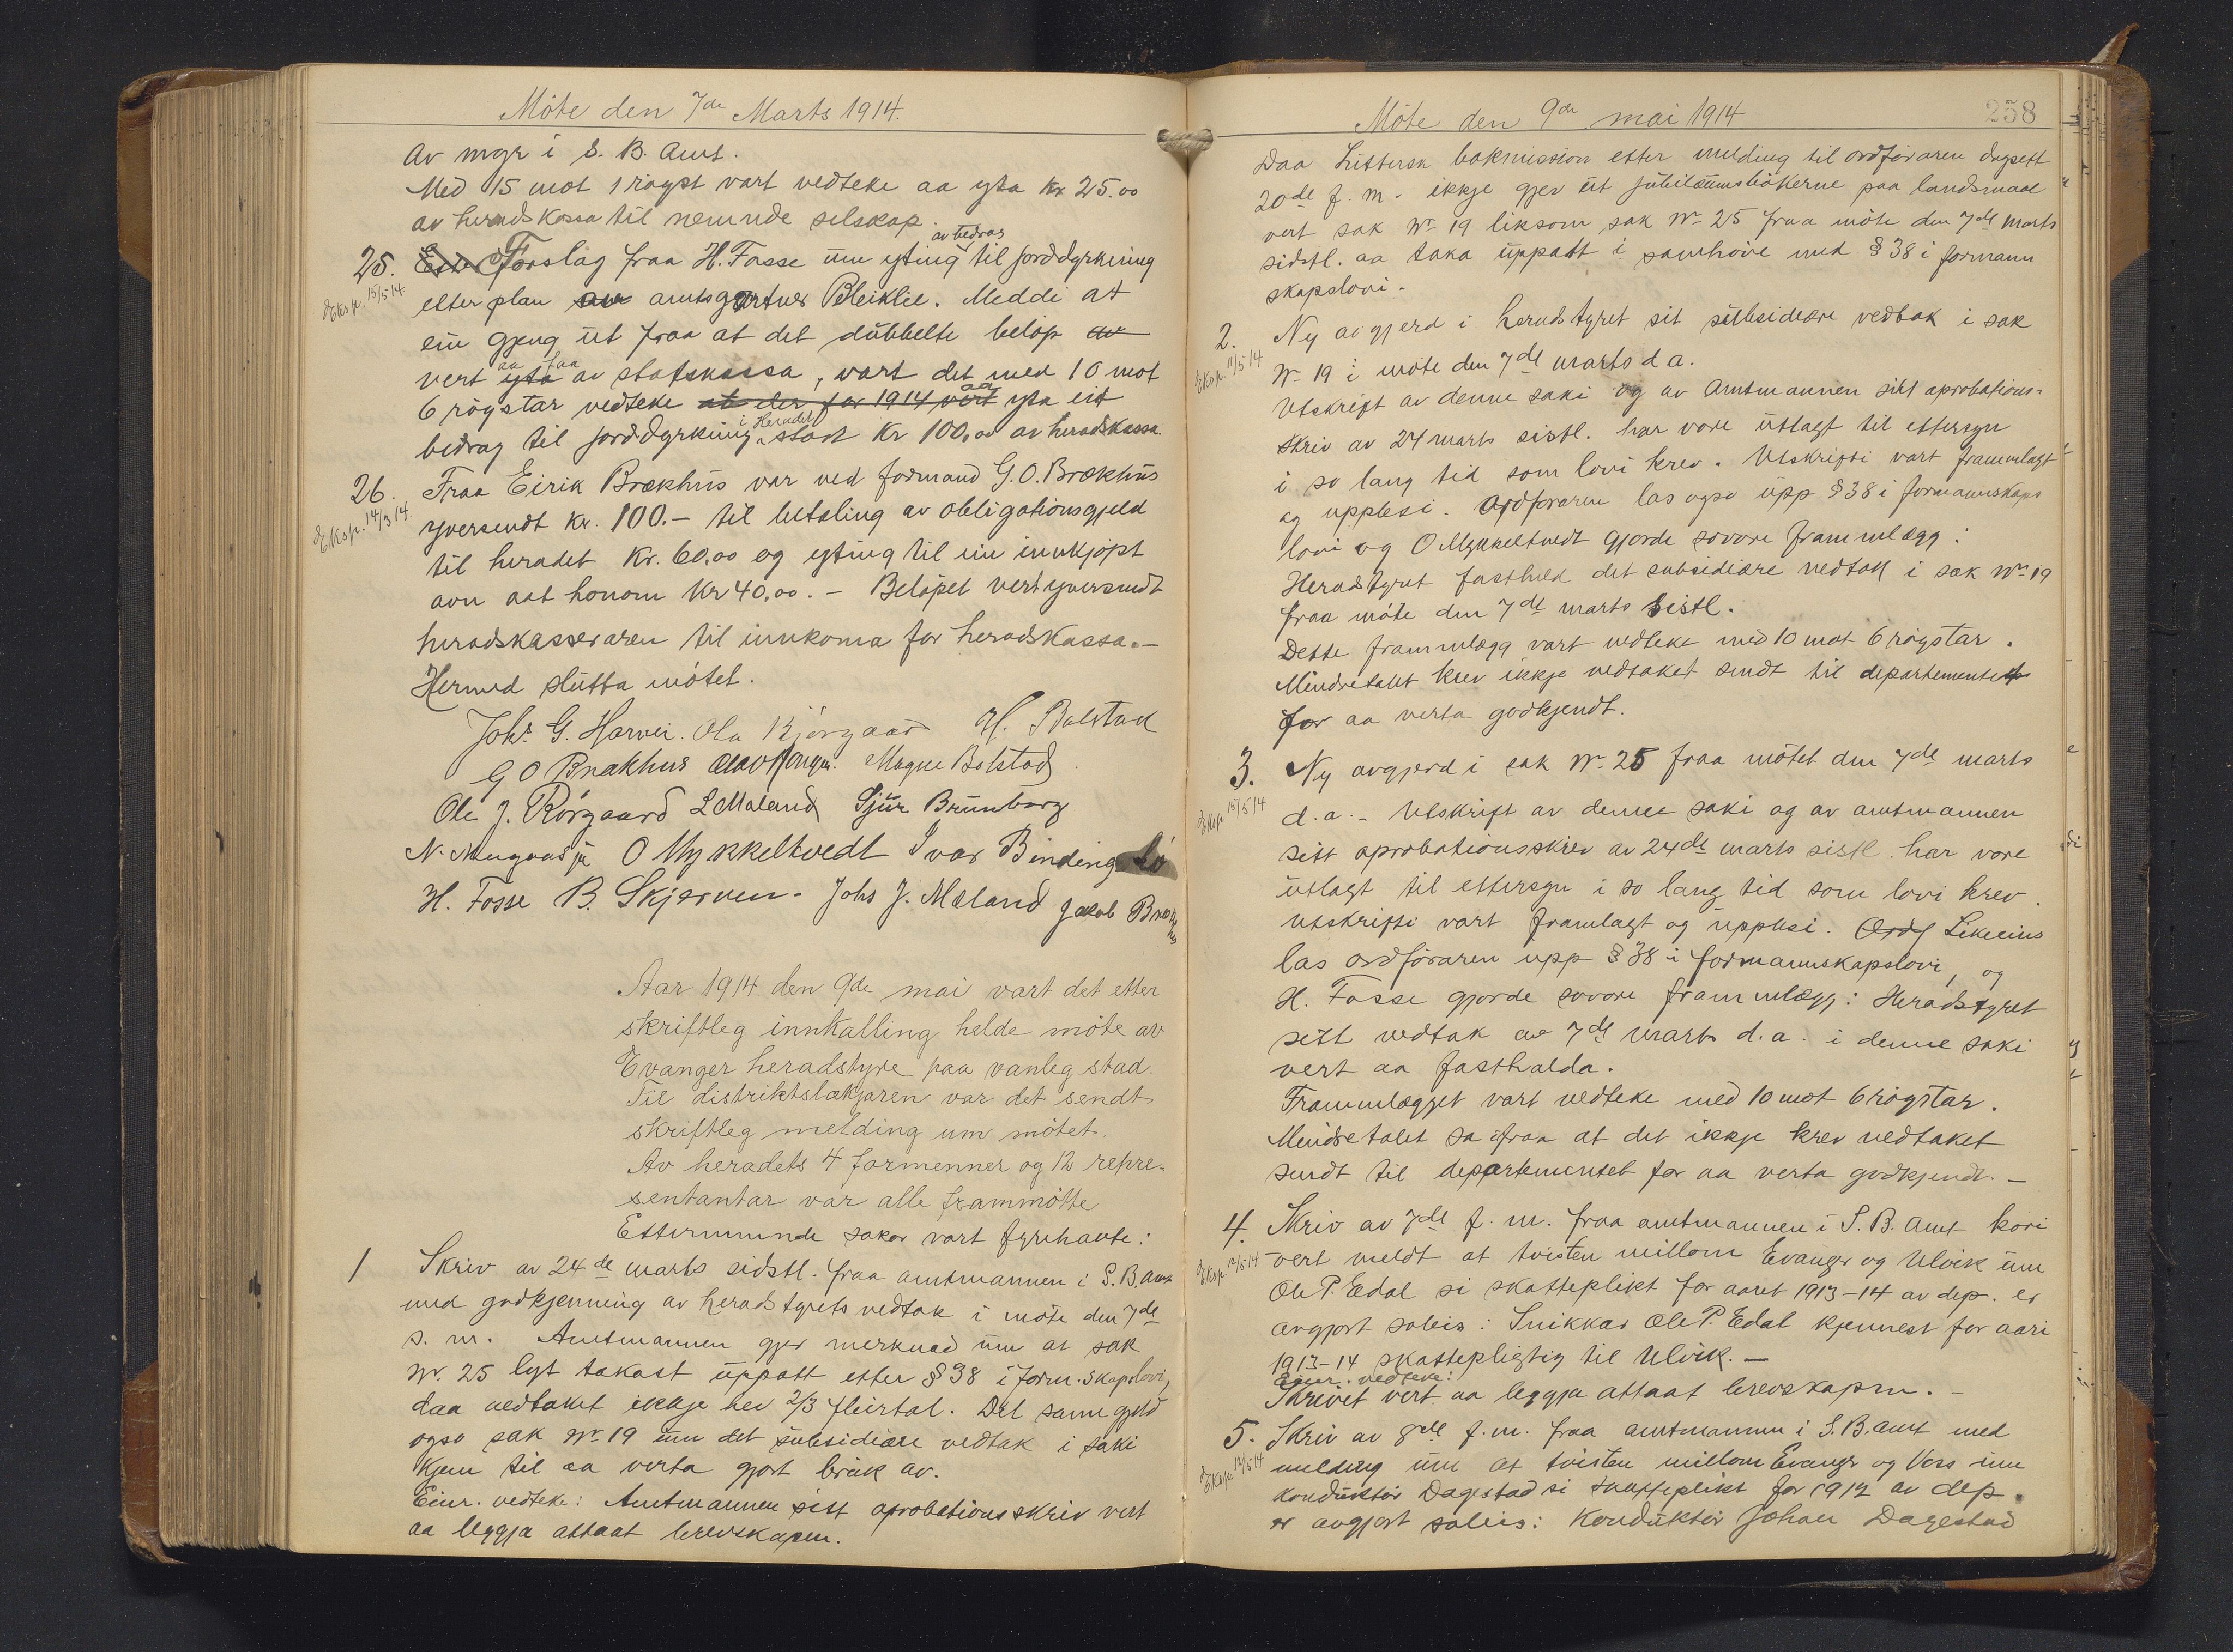 Möte den 7de Marts 1914.
av mgr i S. B. Amt.
Med 15 mot 1 röyst vart vedteke aa yta Kr 25.00
av heradskassa til nemnde selskap.
25. Forslag fraa H. Fosse um yting av bedrag til jorddyrkning
Eksp. 15/5 14.
etter plan av amtsgartner Bleiklie. Meddi at
ein gjeng út fraa at det dubbelte belöp
vert aa faa av statskassa, vart det med 10 mot
6 röystar vedteke at der for 1914 vert aa yta eit
bedrag til jorddyrkning i Heradet stort Kr 100,00 av heradskassa.
26. Fraa Eirik Brækhus var ved formand G. O. Brækhus
Eksp. 14/3 14.
yversendt Kr. 100.- til betaling av obligationsgjeld
til heradet Kr. 60,00 og yting til ein innkjöpt
ovn aat honom Kr 40,00. - Belöpet vert yversendt
heradskasseraren til innkoma for heradskassa. -
Hermed slutta mötet.
Johs G. Horvei. Ola Björgaas H. Bolstad
G O Brækhus Olav Magne Bolstad.
Ole J. Rörgaard L Mæland Sjur Brunborg
N. O Mykkeltvedt Ivar Binding
H. Fosse B. Skjerven. Johs J. Mæland Jakob Brækhus
Aar 1914 den 9de mai vart det etter
skriftleg innkalling helde möte av
Evanger heradstyre paa vanleg stad.
Til distriktslækjaren var det sendt
skriftleg melding um mötet.
Av heradets 4 formenner og 12 repre-
sentantar var alle frammötte
Etternemnde saker vart fyrehavte:
1 Skriv av 24de marts sidstl. fraa amtmannen i S. B. Amt
med godkjenning av heradstyrets vedtak i möte den 7de
s. m. Amtmannen gjer merknad um at sak
Nr. 25 lyt takast uppatt etter § 38 i form.skapslovi,
daa vedtaket ikkje hev 2/3 fleirtal. Det same gjeld
ogso sak Nr 19 um det subsidiære vedtak i saki
kjem til aa verta gjort bruk av.
Einr. vedteke: Amtmannen sitt aprobationsskriv vert
aa leggja attaat brevskapen.
Möte den 9de mai 1914
258
Daa bokmission etter melding til ordföraren dagsett
20de f. m. ikkje gjev út jubilæumsbökerne paa landsmaal
vert sak Nr 19 liksom sak Nr 25 fraa möte den 7de marts
sidstl. aa taka uppatt i samhöve med § 38 i formann
skapslovi.
2. Ny avgjerd i heradstyret sit subsidiære vedtak i sak
Eksp. 11/5 14
Nr 19 i möte den 7de marts d a.
Utskrift av denne saki og av Amtmannen sitt aprobations-
skriv av 24 marts sistl. har vore utlagt til ettersyn
i so lang tid som lovi krev. Utskrifti vart frammlagt
og upplesi. Ordföraren las ogso upp § 38 i formannskaps
lovi og O Mykkeltvedt gjorde sovore frammlegg:
Heradstyret fastheld det subsidiære vedtak i sak Nr 19
fraa möte den 7de marts sistl.
Dette frammlegg vart vedteke med 10 mot 6 röystar.
Mindretalet krev ikkje vedtaket sendt til departementet
for aa verta godkjendt.
3. Ny avgjerd i sak Nr. 25 fraa mötet den 7de marts
Eksp 15/5 14
d. a. - Utskrift av denne saki og av amtmannen
sitt aprobationsskriv av 24de marts sistl. har vore
utlagt til ettersyn i so lang tid som lovi krev.
Utskrifti vart framlagt og upplesi. Ordf Likeeins
las ordföraren upp § 38 i formannskapslovi, og
H. Fosse gjorde sovore frammlegg: Heradstyret
sitt vedtak av 7de marts d. a. i denne saki
vert aa fasthalda.
Frammlegget vart vedteke med 10 mot 6 röystar.
Mindretalet sa ifraa at det ikkje krev vedtaket
sendt til departementet for aa verta godkjendt. -
4. Skriv av 7de f. m. fraa amtmannen i S. B. Amt kori
Eksp 12/5 14
vert meldt at tvisten millom Evanger og Ulvik um
Ole P. Edal si skatteplikt for aaret 1913-14 av dep. er
avgjort soleis: Snikkar Ole P. Edal kjennest for aari
1913-14 skattepligtig til Ulvik. -
Einr. vedteke:
Skrivet vert aa leggja attaat brevskapen. -
5. Skriv av 8de f. m. fraa amtmannen i S. B. Amt med
Eksp 12/5 14
melding um at tvisten millom Evanger og Voss um
konduktör Dagestad si skatteplikt for 1912 av dep.
er avgjort soleis: Konduktör Johan Dagestad